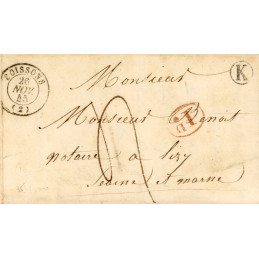 SOISSONS
28
NOV
45
(2)
K
Monsieur
Monsieur Benoit
notaire a lizy
Seine & marne